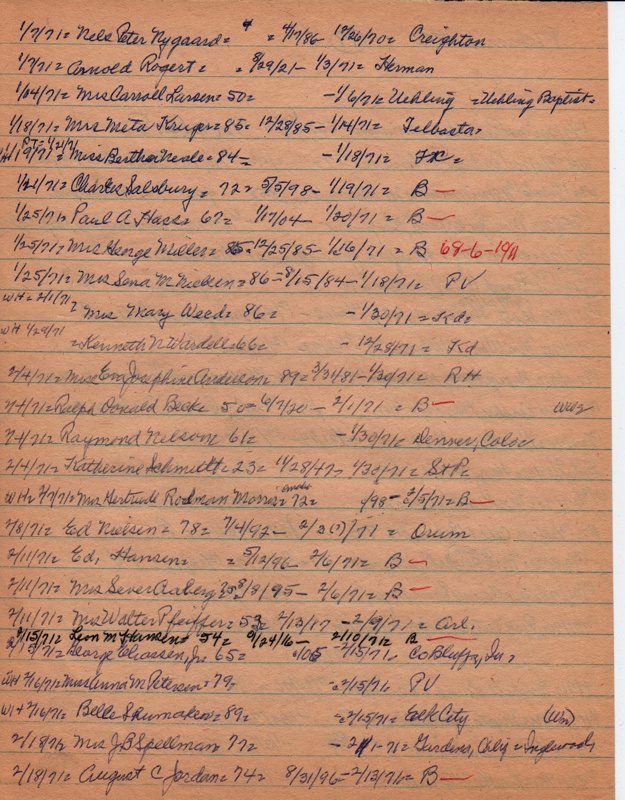 1/7/71= Nels Peter Nygaard= = 4/17/86 12/26/70= Creighton
1/7/71= Arnold Rogert= = 9/29/21- 1/3/71= Herman
1/04/71= Mrs Carroll Larsen= 50= -1/6/71= Uehling =Uehling Baptist=
1/18/71= Mrs Meta Kruger= 85= 12/28/85- 1/14/71= Telbasta=
1/21/71
1/19/71= Miss Bertha = 84- -1/18/71=
1/21/71= Charles Salsbury= 72= 5/5/98- 1/19/71= B-
1/25/71= Paul A Hass= 67= 1/17/04- 1/20/71= B-
1/25/71= Mrs George Miller= 85= 12/25/85- 1/16/71= B 68-6-19
1/25/71= Mrs Sena M Nielsen= 86= 8/15/84- 1/18/71= PV
WH= 2/1/71= Mrs Mary Weed= 86= -1/30/71= Kd=
WH 1/29/71 =Kenneth N Wardell= 66= -12/28/71= Kd
2/4/71= Miss Eva Josephine Anderson= 89= 3/31/81- 1/30/71= RH
2/4/71= Ralph Donald Beck= 50= 6/7/20- 2/1/71= B- WW2
2/4/71= Raymond Nelson= 61= -1/30/71= Denver, Colo=
2/4/71= Katherine Schmidt= 23= 11/28/47- 1/30/71= StP=
WH= 2/7/71= Mrs Gertrude Rodman Morris= 72= /98- 2/5/71= B-
2/8/71= Ed Nielsen= 78= 7/4/92- 2/3(?)/71= Orum
2/11/71= Ed. Hansen= = 5/12/96- 2/6/71= B-
2/11/71= Mrs Sever Aaberg= 8/9/95- 2/6/71= B-
2/11/71= Mrs Walter Pfeiffer= 53= 2/13/17 -2/9/71= Arl.
2/15/71= Leon M Hansen= 54= 9/24/16- 2/10/71= B-
2/15/71= George Eliassen, Jr= 65= /05 -2/15/71, Co Bluffs, Ia=
WH 2/16/71= Miss Anna M Petersen= 79= -2/15/71= PV
WH 2/16/71= Belle Shumaker= 89= -2/15/71= Elk City (Wn)
2/18/71= Mrs J B Spellman 77= - 2/ 1-71= Gardena, Calif= Inglewood
2/18/71= August C Jordan= 74= 8/31/96- 2/13/71= B-